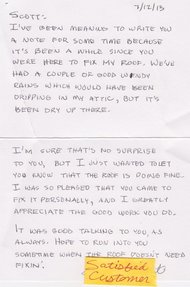 2/12/13
SCOTT:
I'VE BEEN MEANING TO WRITE YOU
A NOTE FOR SOME TIME BECAUSE
IT'S BEEN A WHILE SINCE YOU
WERE HERE TO FIX MY ROOF. WE'VE
HAD A COUPLE OF GOOD WINDY
RAINS WHICH WOULD HAVE BEEN
DRIPPING IN MY ATTIC, BUT IT'S
BEEN DRY UP THERE.
I'M SURE THAT'S NO SURPRISE
TO YOU, BUT I JUST WANTED TO LET
YOU KNOW THAT THE ROOF IS DOING FINE.
I WAS SO PLEASED THAT YOU CAME TO
FIX IT PERSONALLY, AND I GREATLY
APPRECIATE THE GOOD WORK YOU DO.
IT WAS GOOD TALKING TO YOU, AS
ALWAYS. HOPE TO RUN INTO YOU
SOMETIME WHEN THE ROOF DOESN'T NEED
FIXIN'.
Satisfied
Customer